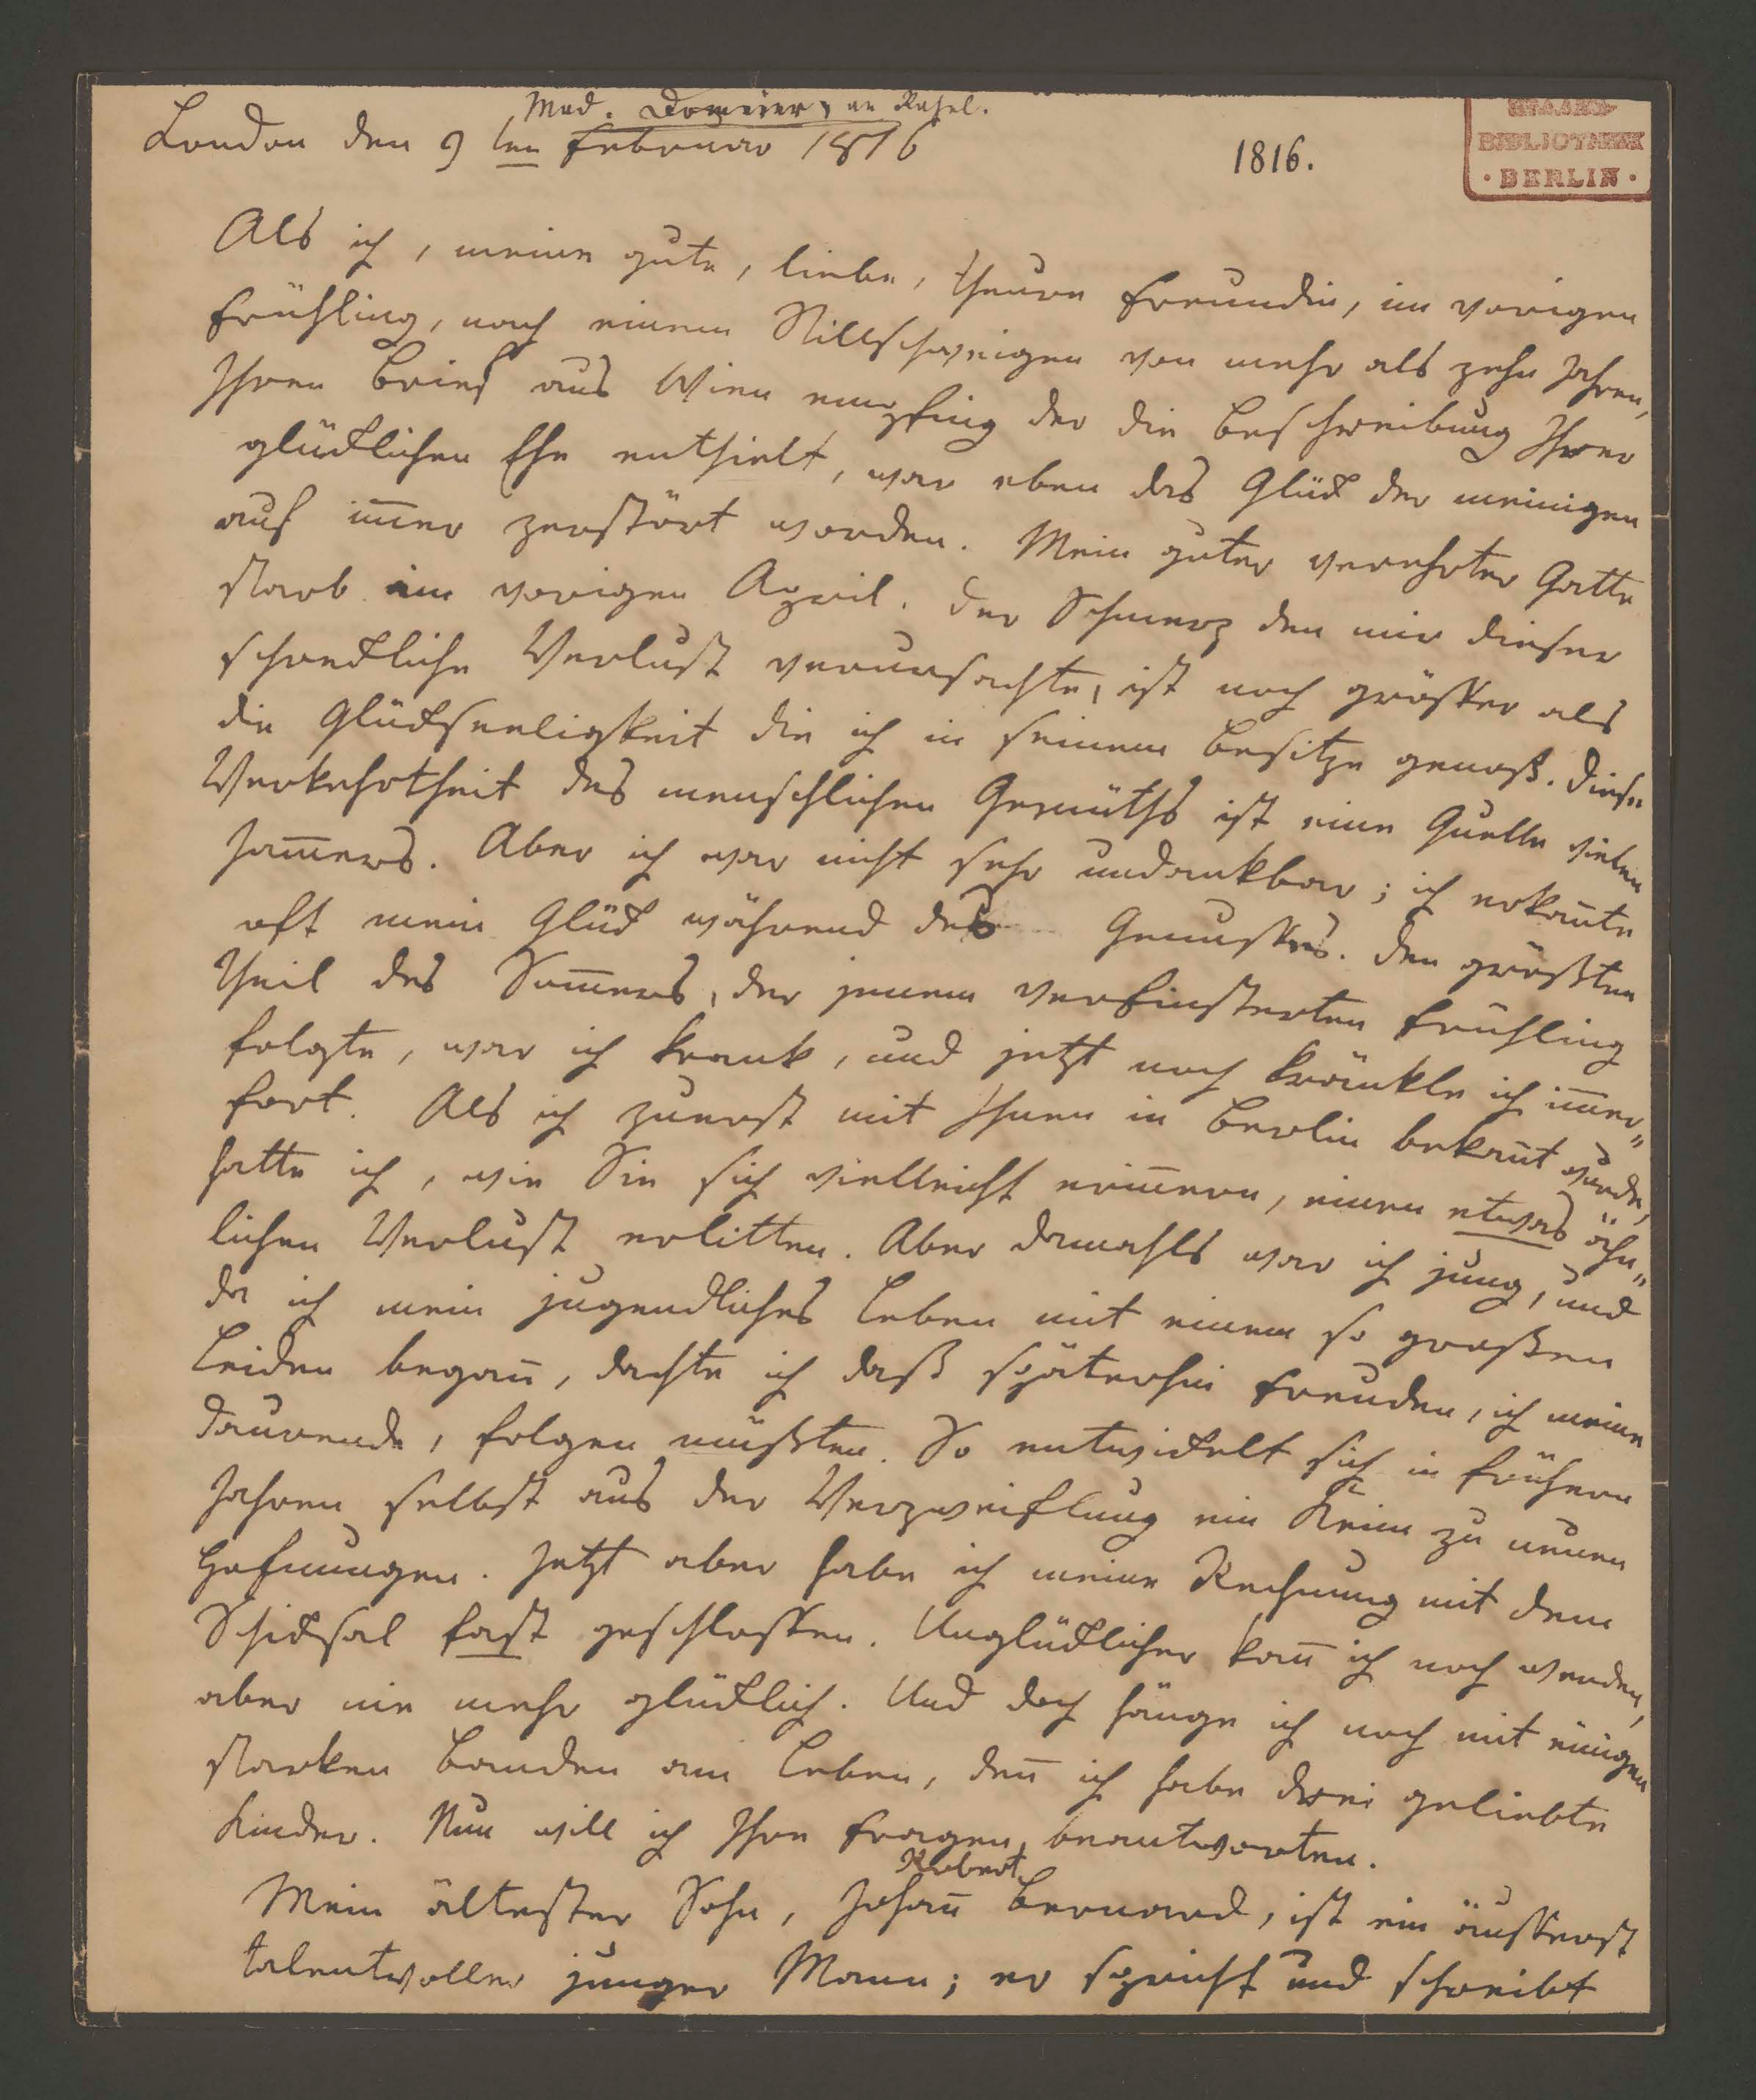 Mad. Domeier, an Rahel.
London den 9ten Februar 1816
1816.
BIBLIOTHEK
· BERLIN ·
Als ich, meine gute, liebe, theure Freundin, im vorigen
Frühling, nach einem Stillschweigen von mehr als zehn Jahren,
Ihren Brief aus Wien empfing der die Beschreibung Ihrer
glücklichen Ehe enthielt, war eben das Glück der meinigen
auf im̅er zerstört worden. Mein guter verehrter Gatte
starb im vorigen April. Der Schmerz den mir dieser
schreckliche Verlust verursachte, ist noch grösser als
die Glückseeligkeit die ich in seinem Besitze genoß. Diese
Verkehrtheit des menschlichen Gemüths ist eine Quelle vielen
Jam̅ers. Aber ich war nicht sehr undankbar; ich erkan̅te
oft mein Glück während des Genusses. Den größten
Theil des Som̅ers, der jenem verfinsterten Frühling
folgte, war ich krank, und jetzt noch kränkle ich im̅er„
fort. Als ich zuerst mit Ihnen in Berlin bekan̅t wurde,
hatte ich, wie Sie sich vielleicht erin̅ern, einen etwas ähn„
lichen Verlust erlitten. Aber damahls war ich jung, und
da ich mein jugendliches Leben mit einem so großen
Leiden began̅, dachte ich daß späterhin Freuden, ich meine
daurende, folgen müßten. So entwickelt sich in frühern
Jahren selbst aus der Verzweiflung ein Keim zu neuen
Hofnungen. Jetzt aber habe ich meine Rechnung mit dem
Schicksal fast geschlossen. Unglücklicher kan̅ ich noch werden,
aber nie mehr glücklich. Und doch hänge ich noch mit einigen
starken Banden am Leben, den̅ ich habe drei geliebte
Kinder. Nun will ich Ihre Fragen beantworten.
Robert
Mein ältester Sohn, Johan̅ Bernard, ist ein äusserst
talentvoller junger Mann; er spricht und schreibt